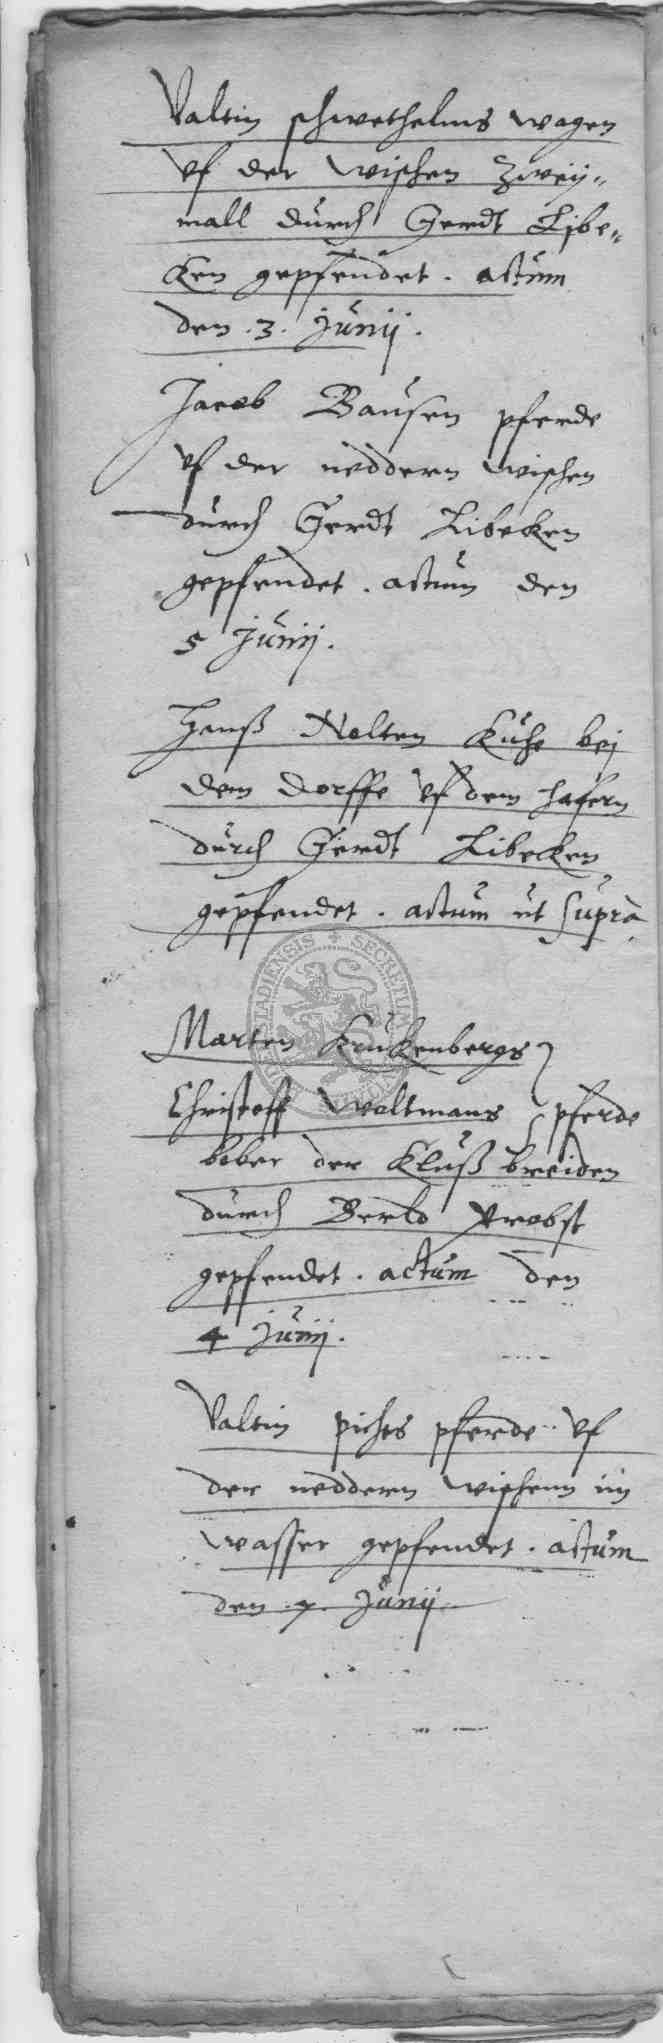 Valtin schwethelms wagen
vf der wischen zweij„
mall durch Gerdt Libe„
ken gepfendet . actum
den .3. Junij .
Jacob Bausen pferde
vf der neddern wischen
durch Gerdt Libecken
gepfendet . actum den
5 Junij .
Hanß Nolten Kuhe bej
dem dorffe vf dem hafern
durch Gerdt Libecken
gepfendet . actum ut supra
SECRETUM
Marten Kruckenbergs
Christoff Woltmans pferde
bober der Kluß breiden
durch Berld Probst
gepfendet . actum den
4 Junij .
Valtin pichts pferde vf
der neddern wischenn im
wasser gepfendet . actum
den .7. Junij